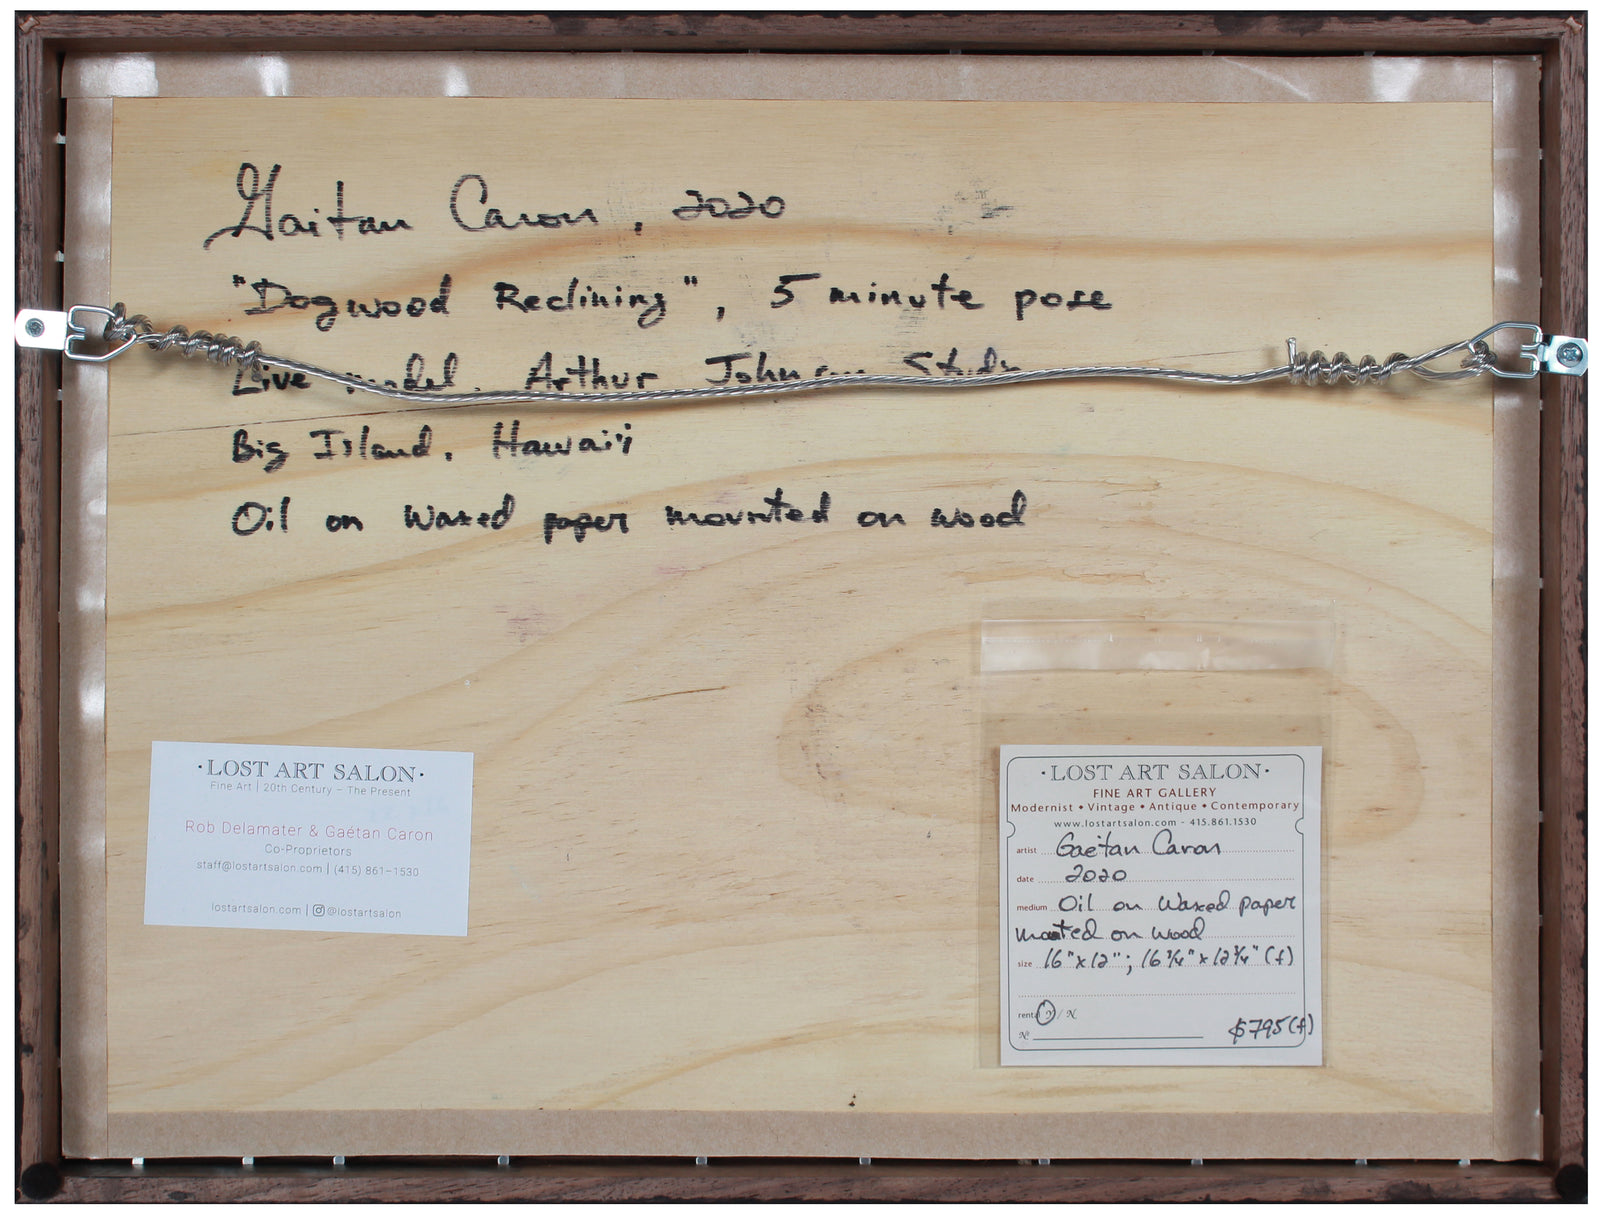 Gaétan Caron, 2020
"Dogwood Reclining", 5 minute pose
Live model. Arthur Johnson
Big Island, Hawai'i
Oil on waxed paper mounted on wood
·LOST ART SALON·
Fine Art | 20th Century – The Present
Rob Delamater & Gaétan Caron
Co-Proprietors
staff@lostartsalon.com | (415) 861–1530
lostartsalon.com | @lostartsalon
·LOST ART SALON·
FINE ART GALLERY
Modernist • Vintage • Antique • Contemporary
www.lostartsalon.com - 415.861.1530
artist Gaétan Caron
date 2020
medium Oil on waxed paper
mounted on wood
size 16"x12"; 16 3/4"x12 3/4" (f)
rental Y / N
№ $795(f)